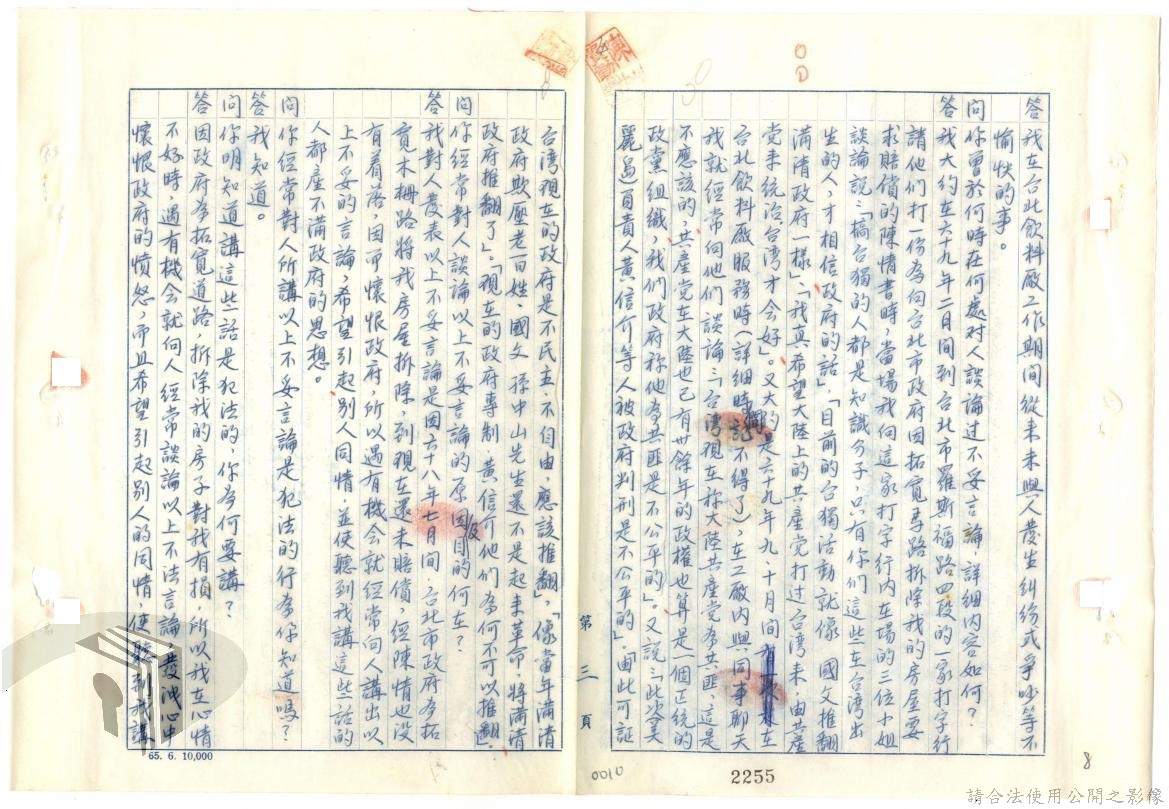 答我在台北飲料廠工作期間從來未與人發生糾紛或爭吵等不
愉快的事。
問你曾於何時在何處对人談論过不妥言論,詳細内容如何?
答我大約在六十九年二月間到台北市羅斯福路四段的一家打字行
請他們打一份為向台北市政府因拓寬馬路拆除我的房屋要
求賠償的陳情書時,當場我向這家打字行内在場的三位小姐
談論說:「搞台獨的人都是知識分子,只有你們這些在台湾出
生的人,才相信政府的話」,「目前的台獨活動就像 國父推翻
满清政府一樣」,「我真希望大陸上的共產党打过台湾来,由共產
党来統治台湾才会好」。又大約是六十九年九、十月間 在
台北飲料廠服務時(詳細時間記不得了),在工廠内與同事聊天
我就經常向他們談論:「台灣現在称大陸共產党為共匪,這是
不應該的,共產党在大陸也已有卅餘年的政權也算是一個正統的
政党組織,我们政府称他為共匪是不公平的」。又說:「此次美
麗島負責人黃信介等人被政府判刑是不公平的」,由此可証
台湾現在的政府是不民主,不自由,應該推翻」,「像當年滿清
政府欺壓老百姓,國父 孫中山先生還不是起来革命,將滿清
政府推翻了」。「現在的政府專制,黃信介他們為何不可以推翻」
問你經常對人談論以上不妥言論的原因及目的何在?
答我對人發表以上不妥言論是因六十八年七月間,台北市政府為拓
寬木柵路將我房屋拆除,到現在還未賠償,經陳情也沒
有着落,因而懷恨政府,所以遇有機会就經常向人講出以
上不妥的言論,希望引起別人同情並使聽到我講這些話的
人都產生不满政府的思想。
問你經常對人所講以上不妥言論是犯法的行為你知道嗎?
答我知道。
問你明知道講這些話是犯法的,你為何要講?
答因政府為拓寬道路,拆除我的房子對我有損,所以我在心情
不好時,遇有機会就向人經常談論以上不法言論 發洩心中
懷恨政府的憤怒,而且希望引起別人的同情,使聽到我講
第三頁
65. 6. 10,000
0010
2255
8
請合法使用公開之影像